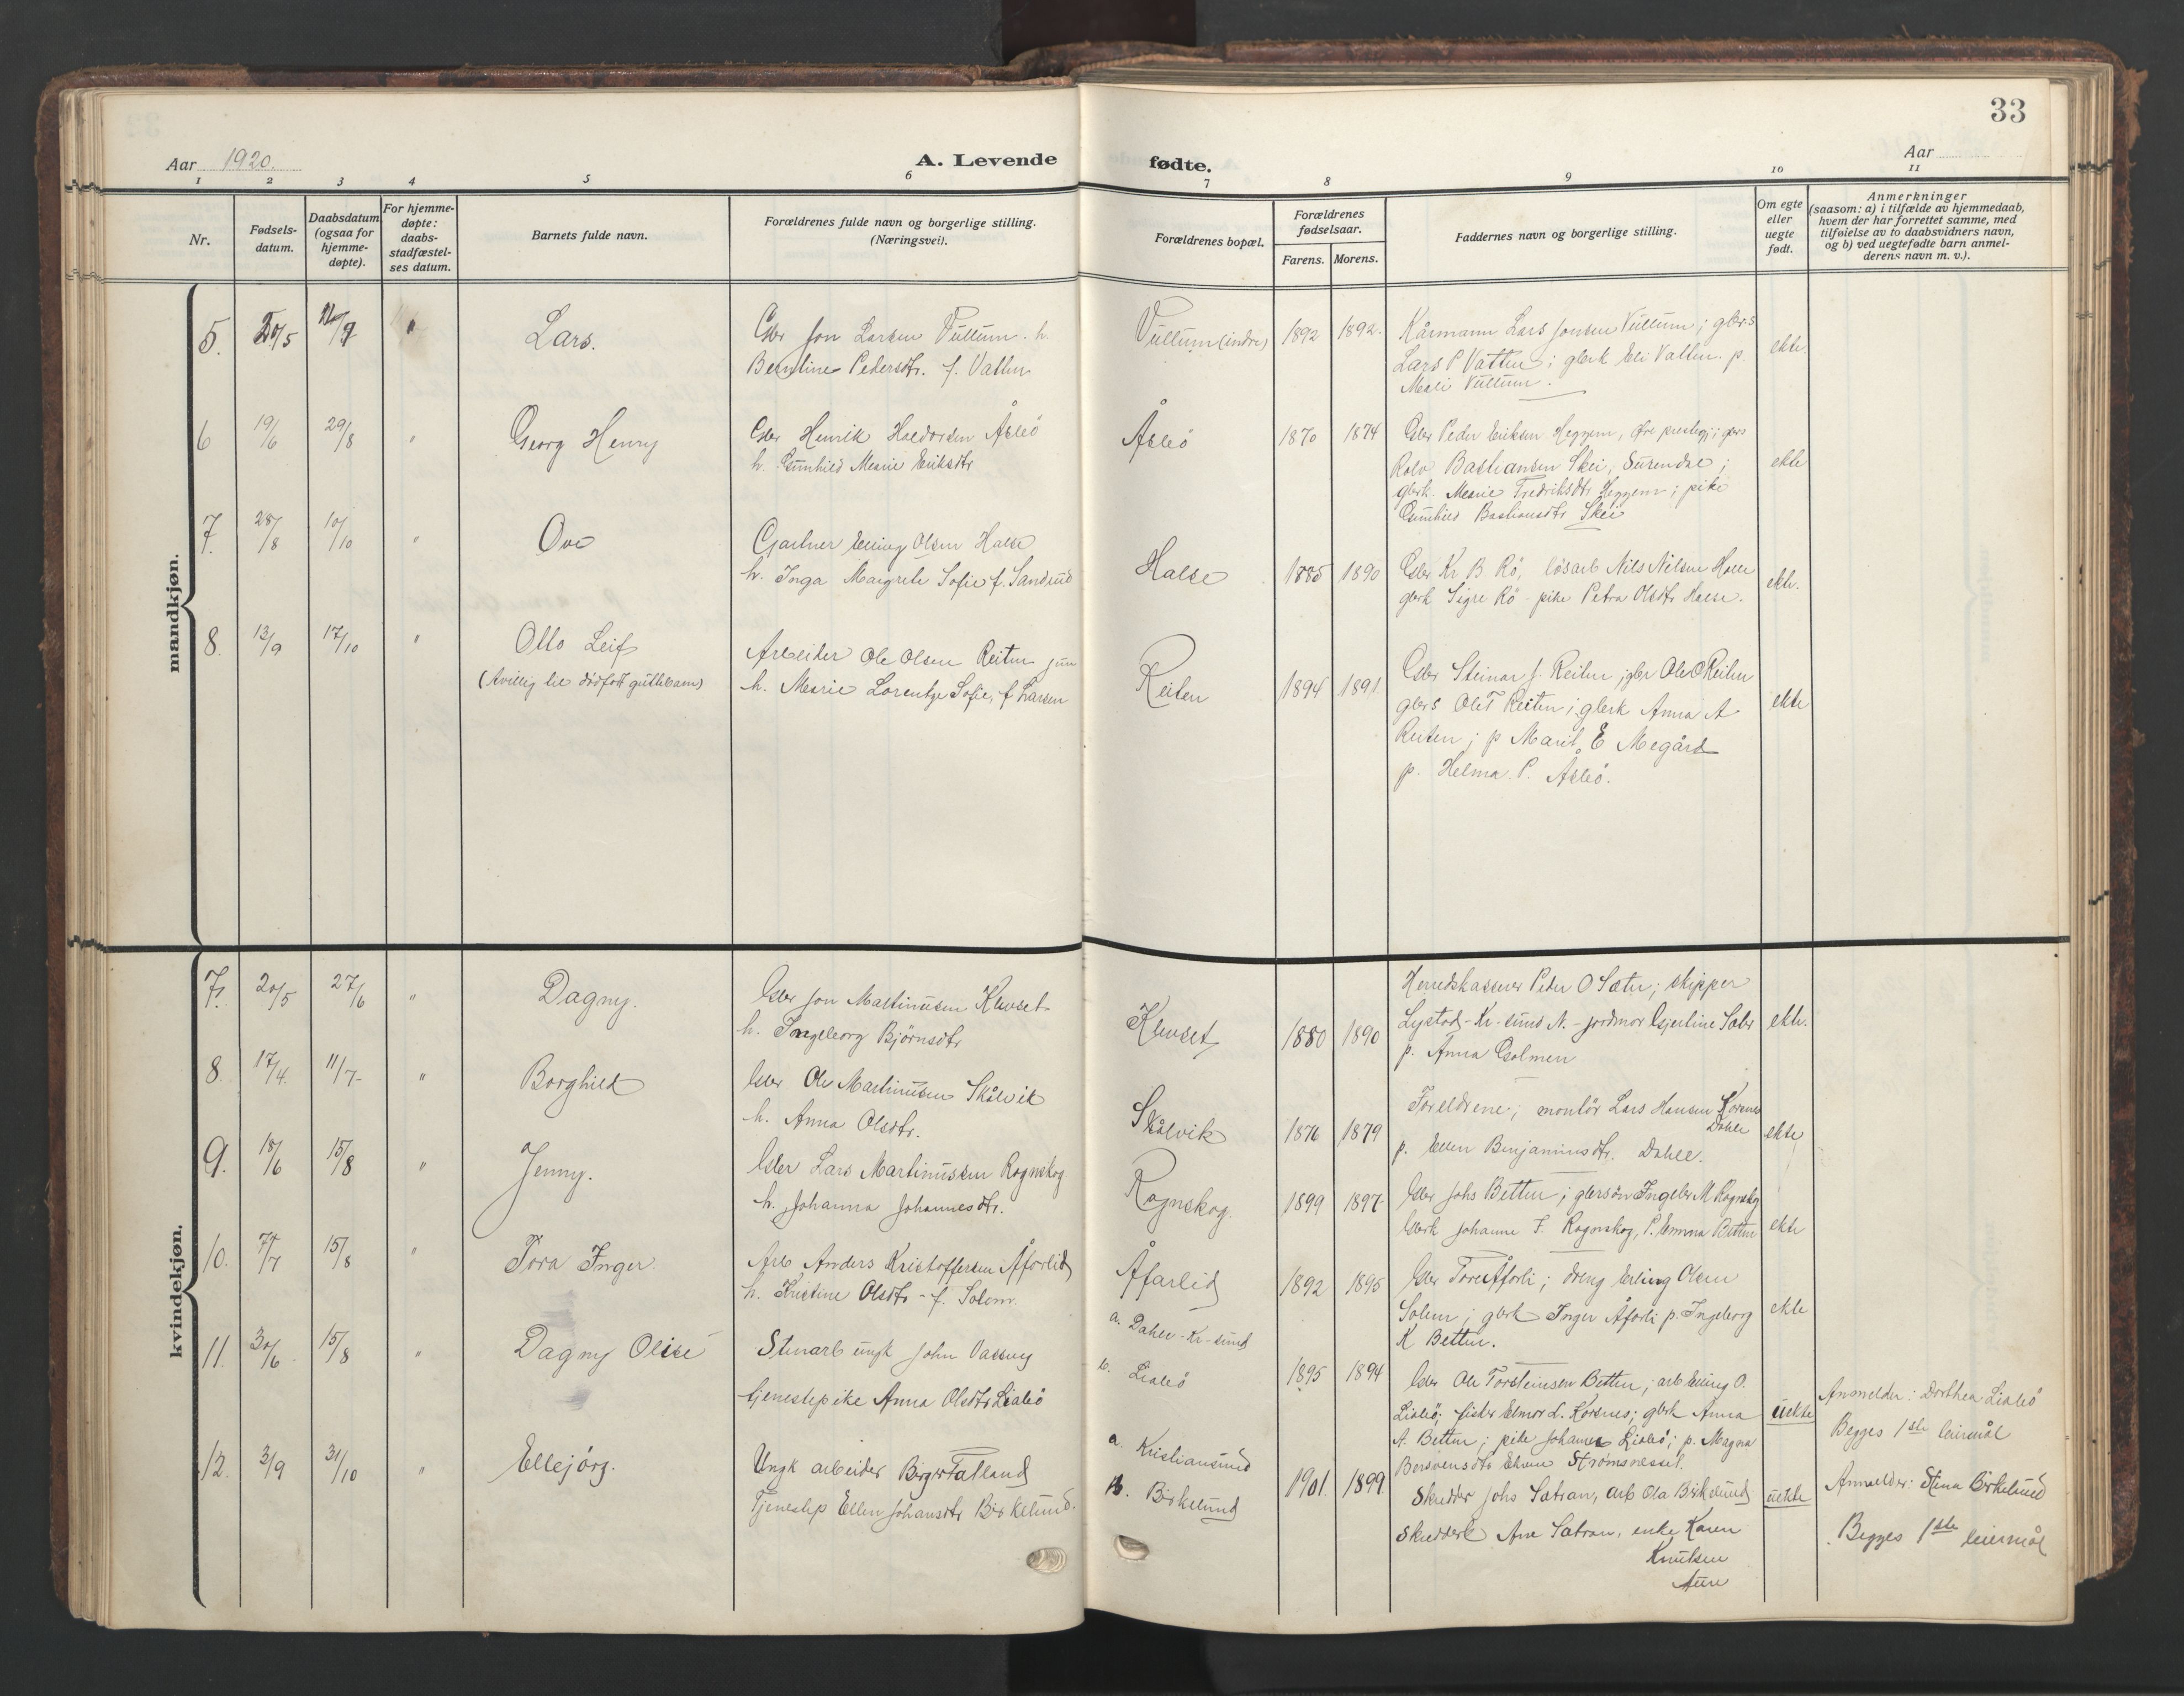 33
Aar 1920.
A. Levende fødte.
Aar
1 2 3 4 5 6 7 8 9 10 11
Nr.
Fødsels-
datum.
Daabsdatum
(ogsaa for
hjemme-
døpte).
For hjemme-
døpte:
daabs-
stadfæstel-
ses datum.
Barnets fulde navn.
Forældrenes fulde navn og borgerlige stilling.
(Næringsvei).
Forældrenes bopæl.
Forældrenes
fødselsaar.
Farens. Morens.
Faddernes navn og borgerlige stilling.
Om egte
eller
uegte
født.
Anmerkninger
(saasom: a) i tilfælde av hjemmedaab,
hvem der har forrettet samme, med
tilføielse av to daabsvidners navn,
og b) ved uegtefødte barn anmel-
derens navn m. v.).
mandkjøn.
5. 20/5 " Lars.
Gbr Jon Larsen Vullum. h.
Berntine Pedersdtr. f. Vatten
Vullum (indre) 1892 1892.
Kårmann Lars Jonsen Vullum; gbr.s
Lars P Vatten; gbrk Eli Vatten. p.
Mali Vullum.
ekte.
6 19/6 29/8 " Georg Henry
Gbr Henrik Haldorsen Åsbö
h. Gunhild Marie Eriksdtr
Åsbö 1870 1874
Gbr Peder Eriksen Heggem, Øre prestegj; gbrs
Rolv Bastiansen Skei, Surendal;
gbrk. Marie Fredriksdtr Heggem; pike
Gunhild Bastiansdtr Skei
ekte
7. 28/8 10/10 " Ove
Gartner Elling Olsen Halse
h. Inga Margrete Sofie f. Sandnes
Halse 1885 1890
Gbr. Kr B Rö, lösarb Nils Nilsen Halse
gbrk Sigre Rö - pike Petra Olsdtr Halse.
ekte.
8. 13/9 17/10 " Otto Leif
(tvilling til dødfødt guttebarn)
Arbeider Ole Olsen Reiten jun
h. Marie Lorentze Sofie, f. Larsen
Reiten 1894 1891.
Gbr Steinar J. Reiten; gbr Ole O Reiten
gbrs Ole T Reiten; gbrk Anna A
Reiten; p Marit E Megård
p. Helma P. Åsbö.
ekte
kvindekjøn.
7. 20/5 27/6 " Dagny.
Gbr Jon Martinusen Klevset
h. Ingeborg Bjørnsdtr
Klevset 1880 1890
Herredskasserer Peder O Sæter; skipper
Lystad - Kr-sund N. - jordmor Gjertine Sæter
p. Anna Golmen
ekte.
8. 17/4. 11/7 " Borghild
Gbr Ole Martinusen Skålvik
h. Anna Olsdtr.
Skålvik 1876 1879
Foreldrene; montör Lars Hansen Korsnes
Dahle
p. Ellen Benjaminsdtr. Dahle.
ekte
9. 18/6 15/8 " Jenny.
Gbr Lars Martinussen Rognskog
h. Johanna Johannesdtr.
Rognskog. 1899 1897
Gbr Johs Betten; gbrsön Ingebr M Rognskog
Gbrk Johanne F. Rognskog, P. Emma Betten
ekte
10. 7/7 15/8 " Tora Inger
Arb Anders Kristoffersen Åforlid
h. Kristine Olsdtr - f. Solem.
Åfarlid 1892 1895
Gbr Tore Åforli; dreng Erling Olsen
Solem; gbrk Inger Åforli p. Ingeborg
K Betten.
ekte
11. 30/6 15/8 " Dagny Olise
Stenarb ungk John Vassvey
tjenestepike Anna Olsdtr Liabö
a. Dahle - Kr-sund
b. Liabö
1895 1894
Gbr Ole Torsteinsen Betten; arb Elling O.
Liabö; fisker Elmor L. Korsnes; gbrk Anna
A. Betten; pike Johanna Liabö; p. Magna
Strømsnesset.
uekte
Anmelder: Dorthea Liabö
Begges 1ste leiermål
12. 3/9 31/10 " Ellejörg.
Ungk arbeider Birger Tatland
Tjenestep Ellen Johansdtr Birkelund.
a. Kristiansund
b. Birkelund
1901. 1899
Skredder Johs Sætran, arb Ola Birkelund
skredderk Ane Sætran, enke Karen
Knutsen
Aure
uekte
Anmelder: Stina Birkelund
Begges 1ste leiermål